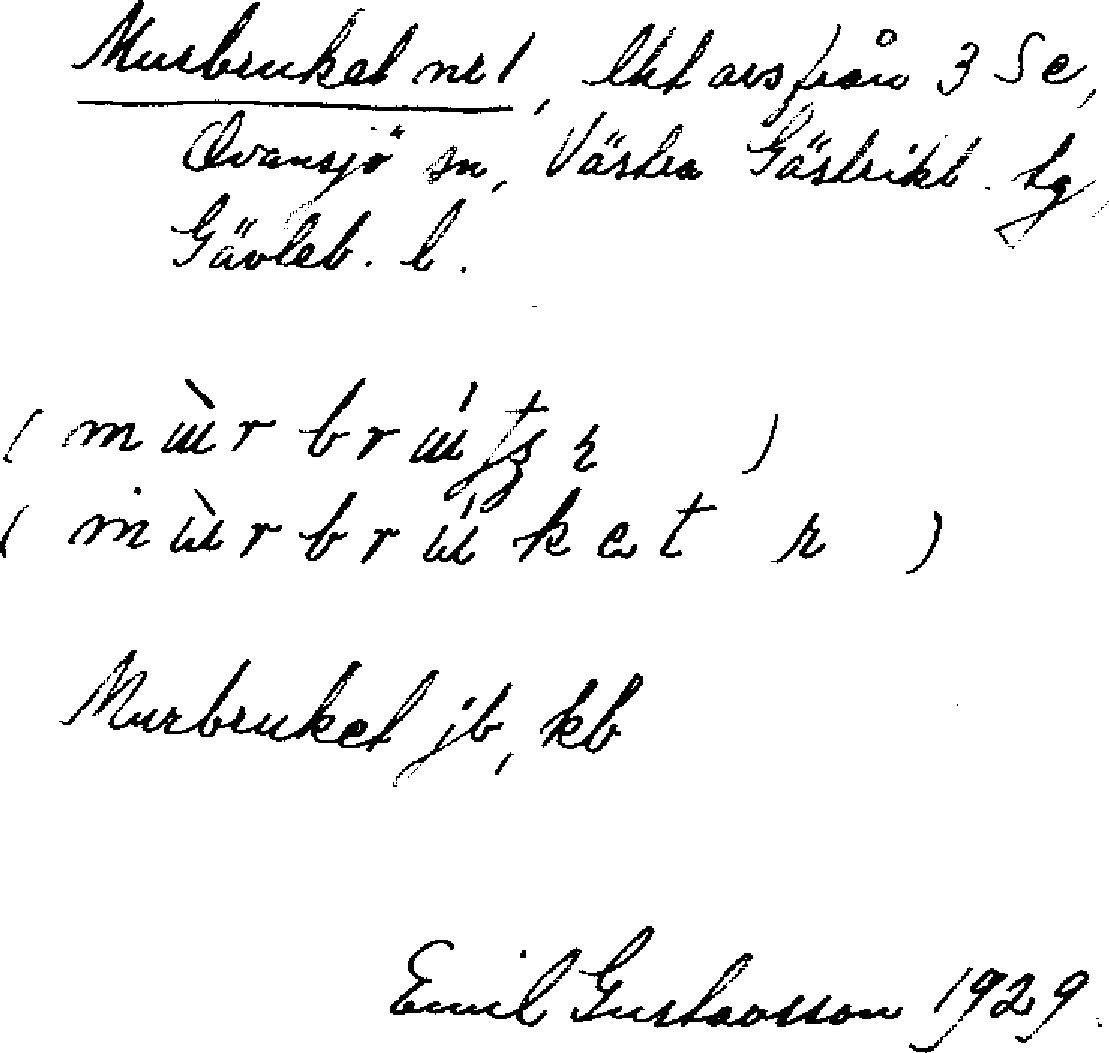 Murbruket nr 1, lht avs från 3 Se,
Ovansjö sn, Västra Gästrikl. tg,
Gävleb. l.
( m ù r b r ú
( m ù r b r ú k e t r )
Murbruket jb, kb
Emil Gustavsson 1929.